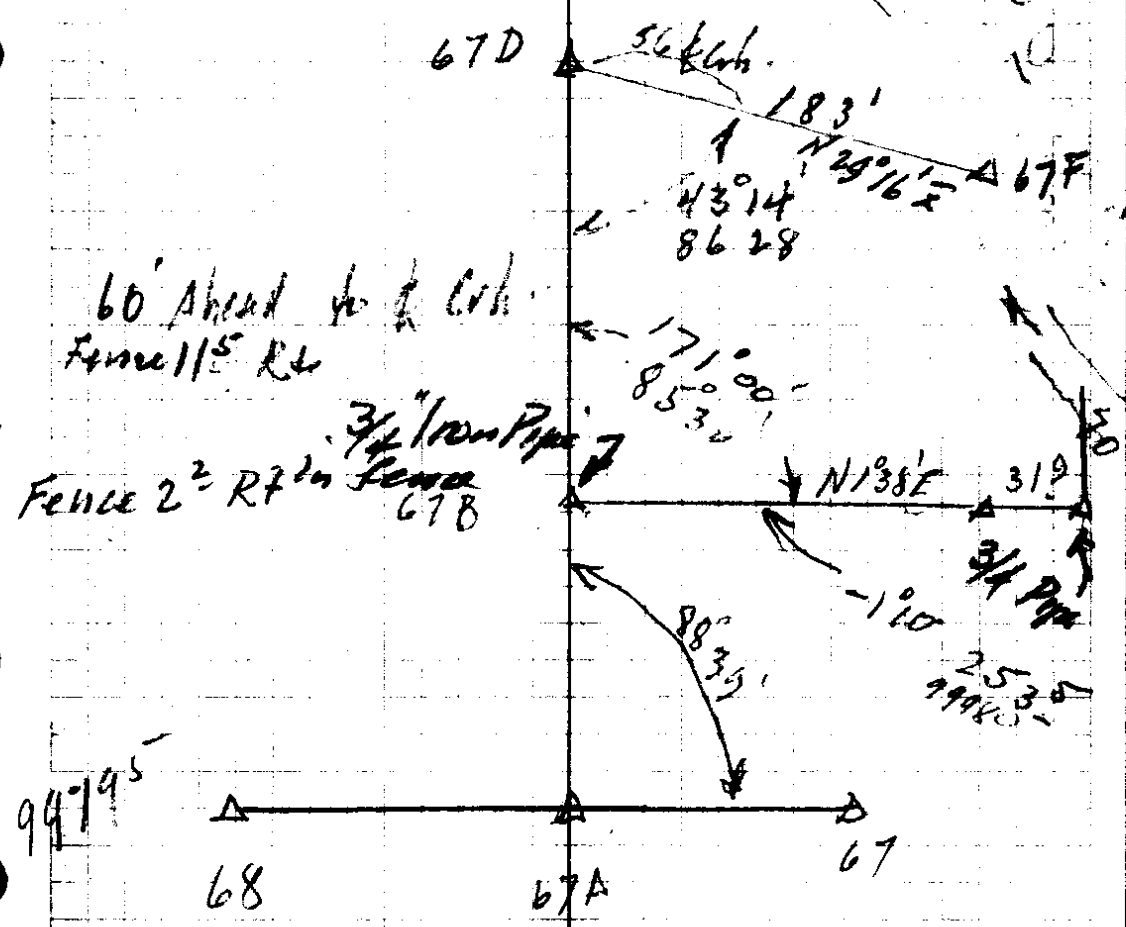 67D
56' ℄ Crk.
183'
N29°16'E
67F
43°14'
86 28
60' Ahead to ℄ Crk.
Fence 11⁵ Rt
171°00'
85°30'
3/4" Iron Pipe
Fence 2² Rt in fence
67B
N1°38'E
31⁹
50
3/4 Pipe
-1°10
88°39'
2535
68
67A
67